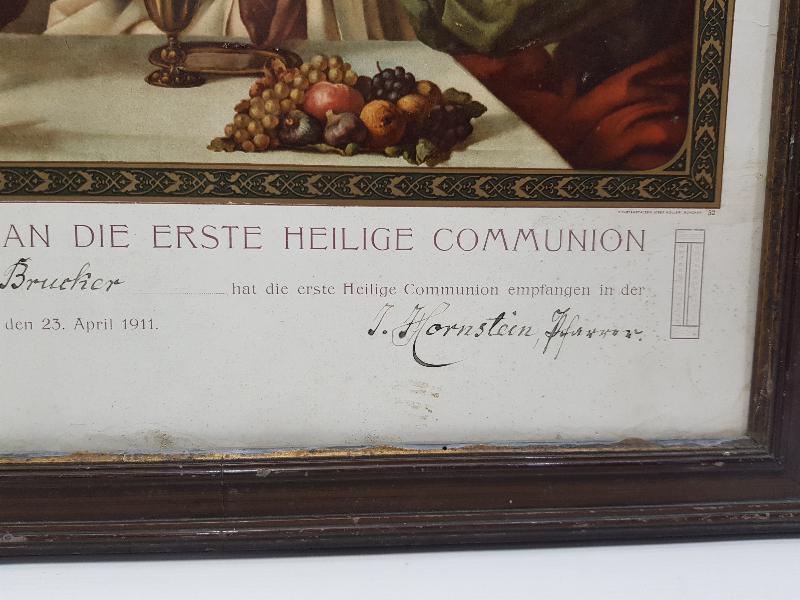 AN DIE ERSTE HEILIGE COMMUNION
Brucker hat die erste Heilige Communion empfangen in der
den 23. April 1911.
J. Hornstein, Pfarrer.